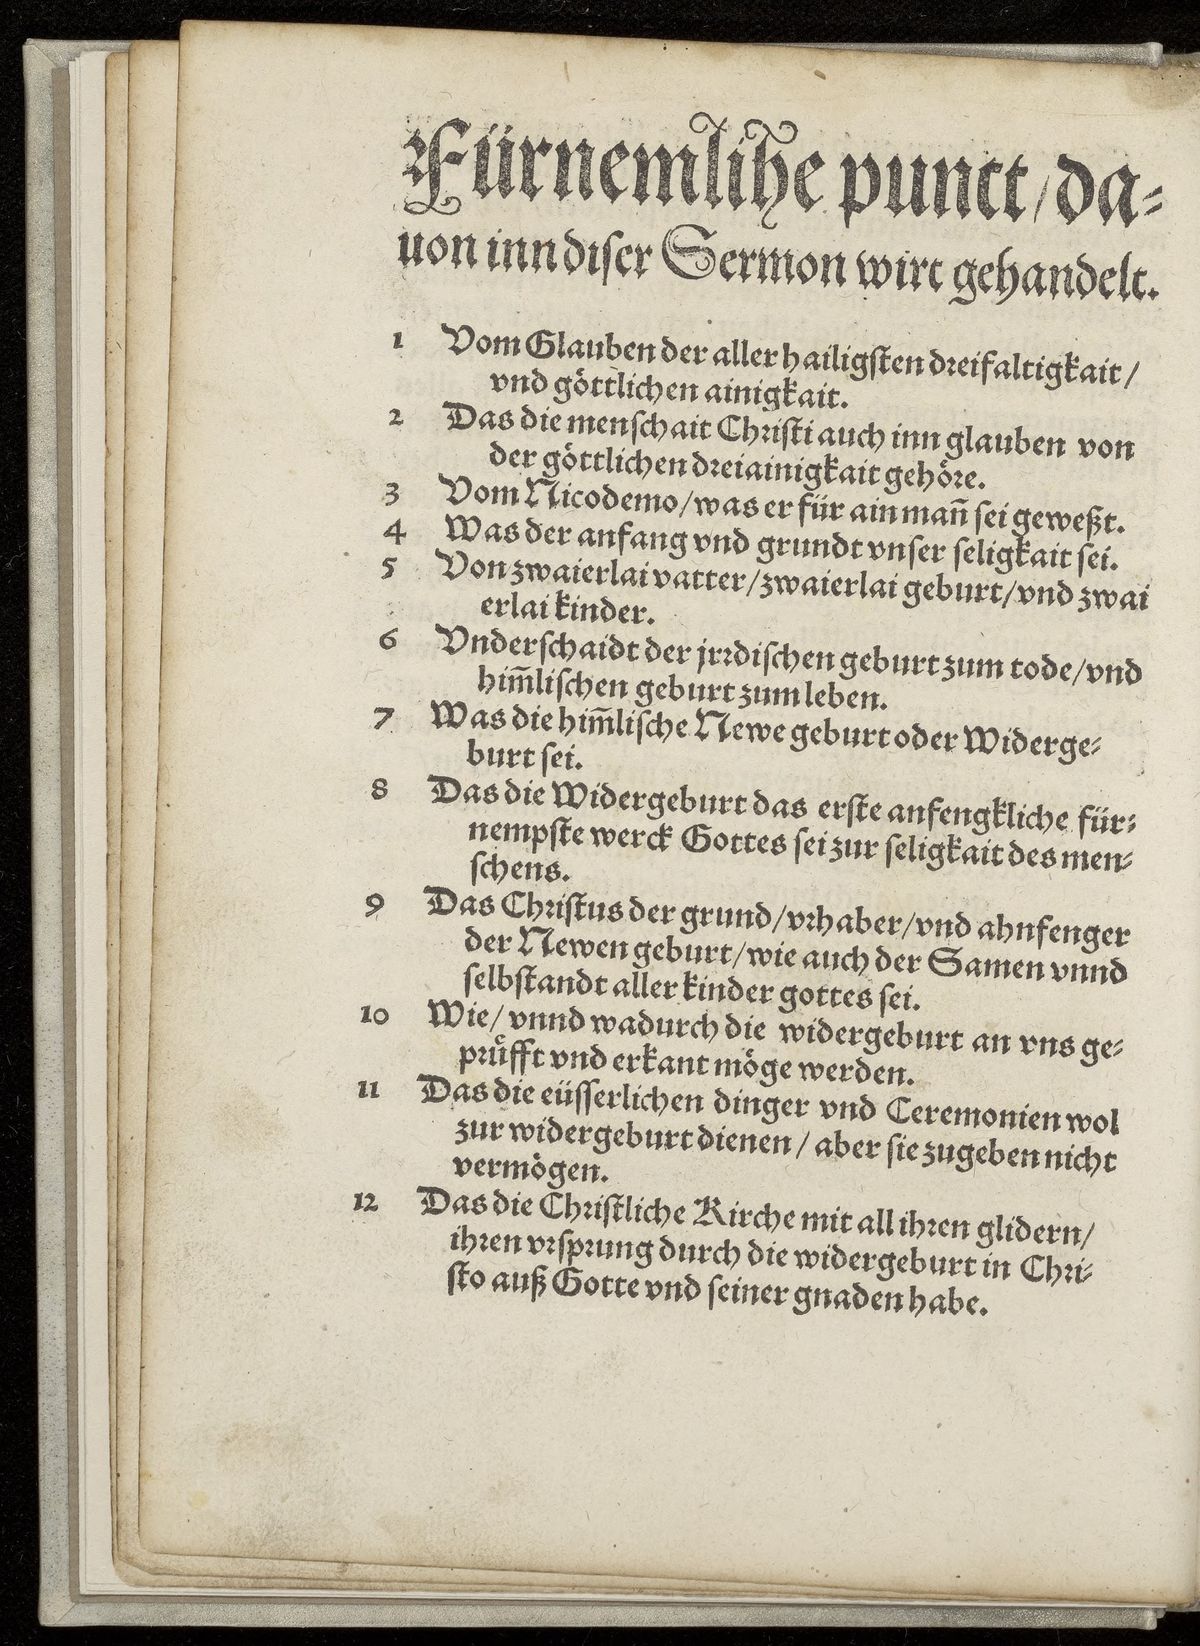 Fürnemlihe punct/da⸗
uon inn diser Sermon wirt gehandelt.
1 Vom Glauben der aller hailigsten dreifaltigkait/
vnd göttlichen ainigkait.
2 Das die menschait Christi auch inn glauben von
der göttlichen dreiainigkait gehöre.
3 Vom Nicodemo/was er für ain mañ sei geweßt.
4 Was der anfang vnd grundt vnser seligkait sei.
5 Von zwaierlai vatter/zwaierlai geburt/vnd zwai
erlai kinder.
6 Vnderschaidt der jrrdischen geburt zum tode/vnd
him̃lischen geburt zum leben.
7 Was die him̃lische Newe geburt oder Widerge⸗
burt sei.
8 Das die Widergeburt das erste anfengkliche für⸗
nempste werck Gottes sei zur seligkait des men⸗
schens.
9 Das Christus der grund/vrhaber/vnd ahnfenger
der Newen geburt/wie auch der Samen vnnd
selbstandt aller kinder gottes sei.
10 Wie/ vnnd wadurch die widergeburt an vns ge⸗
prüfft vnd erkant möge werden.
11 Das die eüsserlichen dinger vnd Ceremonien wol
zur widergeburt dienen/ aber sie zugeben nicht
vermögen.
12 Das die Christliche Kirche mit all ihren glidern/
ihren vrsprung durch die widergeburt in Chri⸗
sto auß Gotte vnd seiner gnaden habe.